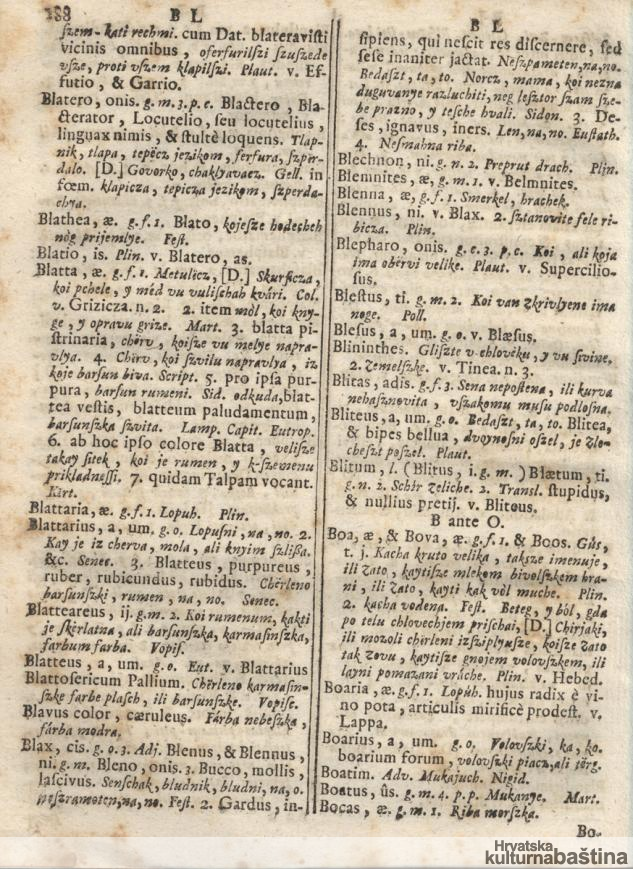 188 B L
szem-kati rechmi. cum Dat. blateravisti
vicinis omnibus, oserfurilszi szuszede
vsze, proti vszem klapilszi. Plaut. v. Ef-
futio, & Garrio.
Blatero, onis. g. m. 3. p. c. Blactero, Bla-
cterator, Locutelio, seu locutelius,
linguax nimis, & stultè loquens. Tlap-
nik, tlapa, tepècz jezikom, ferfura, szpèr-
dalo. [D.] Govorko, chaklyavacz. Gell. in
fœm. klapicza, tepicza jezikom, szperda-
chya.
Blathea, æ. g. f. 1. Blato, kojesze hodecheh
nòg prijemlye. Fest.
Blatio, is. Plin. v. Blatero, as.
Blatta, æ. g. f. 1. Metulicz, [D.] Skurficza,
koi pchele, y méd vu vulischah kvári. Col.
v. Grizicza. n. 2. 2. item mòl, koi kny-
ge, y opravu grize. Mart. 3. blatta pi-
strinaria, chèrv, koisze vu melye napra-
vlya. 4. Chèrv, koi szvilu napravlya, iz
koje barsun biva. Script. 5. pro ipsa pur-
pura, barsun rumeni. Sid. odkuda, blat-
tea vestis, blatteum paludamentum,
barsunszka szvita. Lamp. Capit. Eutrop.
6. ab hoc ipso colore Blatta, velisze
takay sitek, koi je rumen, y k-szemenu
prikladneſſi. 7. quidam Talpam vocant.
Kirt.
Blattaria, æ. g. f. 1. Lopuh. Plin.
Blattarius, a, um. g. o. Lopusni, na, no. 2.
Kay je iz cherva, mola, ali knyim szlissa.
&c. Senec. 3. Blatteus, purpureus,
ruber, rubicundus, rubidus. Chèrleno
barsunszki, rumen, na, no. Senec.
Blatteareus, ij. g. m. 2. Koi rumenum, kakti
je skèrlatna, ali barsunszka, karmasinszka,
farbum farba. Vopis.
Blatteus, a, um. g. o. Eut. v. Blattarius
Blattosericum Pallium. Chèrleno karmasin-
szke farbe plasch, ili barsunszke. Vopisc.
Blavus color, cæruleus. Fárba nebeszka,
fárba modra.
Blax, cis. g. o. 3. Adj. Blenus, & Blennus,
ni. g. m. Bleno, onis. 3. Bucco, mollis,
lascivus. Senschak, bludnik, bludni, na, o.
neszramoten, na, no. Fest. 2. Gardus, in-
B L
sipiens, qui nescit res discernere, sed
sese inaniter jactat. Neszpameten, na, no.
Bedaszt, ta, to. Norcz, mama, koi nezna
duguvanye razluchiti, neg lesztor szam sze-
be prazno, y tesche hvali. Sidon. 3. De-
ses, ignavus, iners. Len, na, no. Eustath.
4. Nesmahna riba.
Blechnon, ni. g. n. 2. Preprut drach. Plin.
Blemnites, æ, g. m. 1. v. Belmnites.
Blenna, æ, g. f. 1. Smerkel, hrachek.
Blennus, ni. v. Blax. 2. sztanovite fele ri-
bicza. Plin.
Blepharo, onis. g. c. 3. p. c. Koi, ali koja
ima obèrvi velike. Plaut. v. Supercilio-
sus.
Blestus, ti. g. m. 2. Koi van zkrivlyene ima
noge. Poll.
Blesus, a, um. g. o. v. Blæsus.
Blininthes. Gliszte v-chlovèku, y vu sivine.
2. Zemelszke. v. Tinea. n. 3.
Blitas, adis. g. f. 3. Sena nepostena, ili kurva
nehasznovita, vszakomu musu podlosna.
Bliteus, a, um. g. o. Bedaszt, ta, to. Blitea,
& bipes bellua, dvoynosni oszel, je zlo-
cheszt poszel. Plaut.
Blitum, l. (Blitus, i. g. m.) Blætum, ti.
g. n. 2. Schìr zeliche. 2. Transl. stupidus,
& nullius pretij. v. Bliteus.
B ante O.
Boa, æ, & Bova, æ. g. f. 1. & Boos. Gùs,
t. j. Kacha kruto velika, taksze imenuje,
ili zato, kaytisze mlekom bivolszkem hra-
ni, ili zato, kayti kak vòl muche. Plin.
2. kacha vodena. Fest. Beteg, y ból, gda
po telu chlovechjem prischai, [D.] Chirjaki,
ili mozoli chèrleni izsziplyusze, koisze zato
tak zovu, kaytisze gnojem volovszkem, ili
layni pomazani vráche. Plin. v. Hebed.
Boaria, æ. g. f. 1. Lopúh. hujus radix è vi-
no pota, articulis mirificè prodest. v.
Lappa.
Boarius, a, um. g. o. Volovszki, ka, ko.
boarium forum, volovszki piacz, ali tèrg.
Boatim. Adv. Mukajuch. Nigid.
Boatus, ûs. g. m. 4. p. p. Mukanye. Mart.
Bocas, æ. g. m. 1. Riba morszka.
Bo-
Hrvatska
kulturnabaština